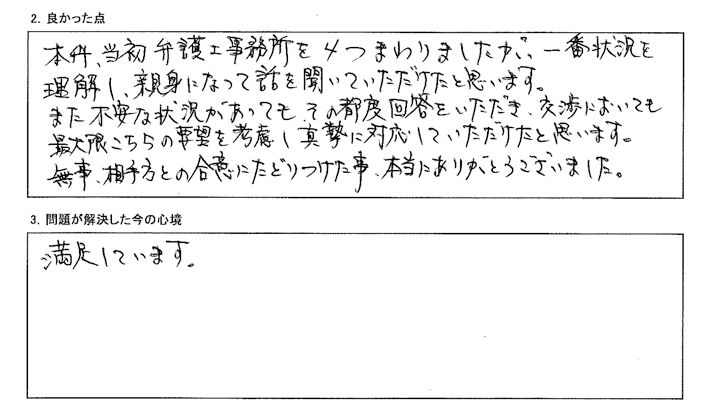 2. 良かった点
本件、当初弁護士事務所を4つまわりましたが、一番状況を
理解し、親身になって話を聞いていただけたと思います。
また不安な状況があっても、その都度回答をいただき、交渉においても
最大限こちらの要望を考慮し真摯に対応していただけたと思います。
無事、相手方との合意にたどりつけた事、本当にありがとうございました。
3. 問題が解決した今の心境
満足しています。